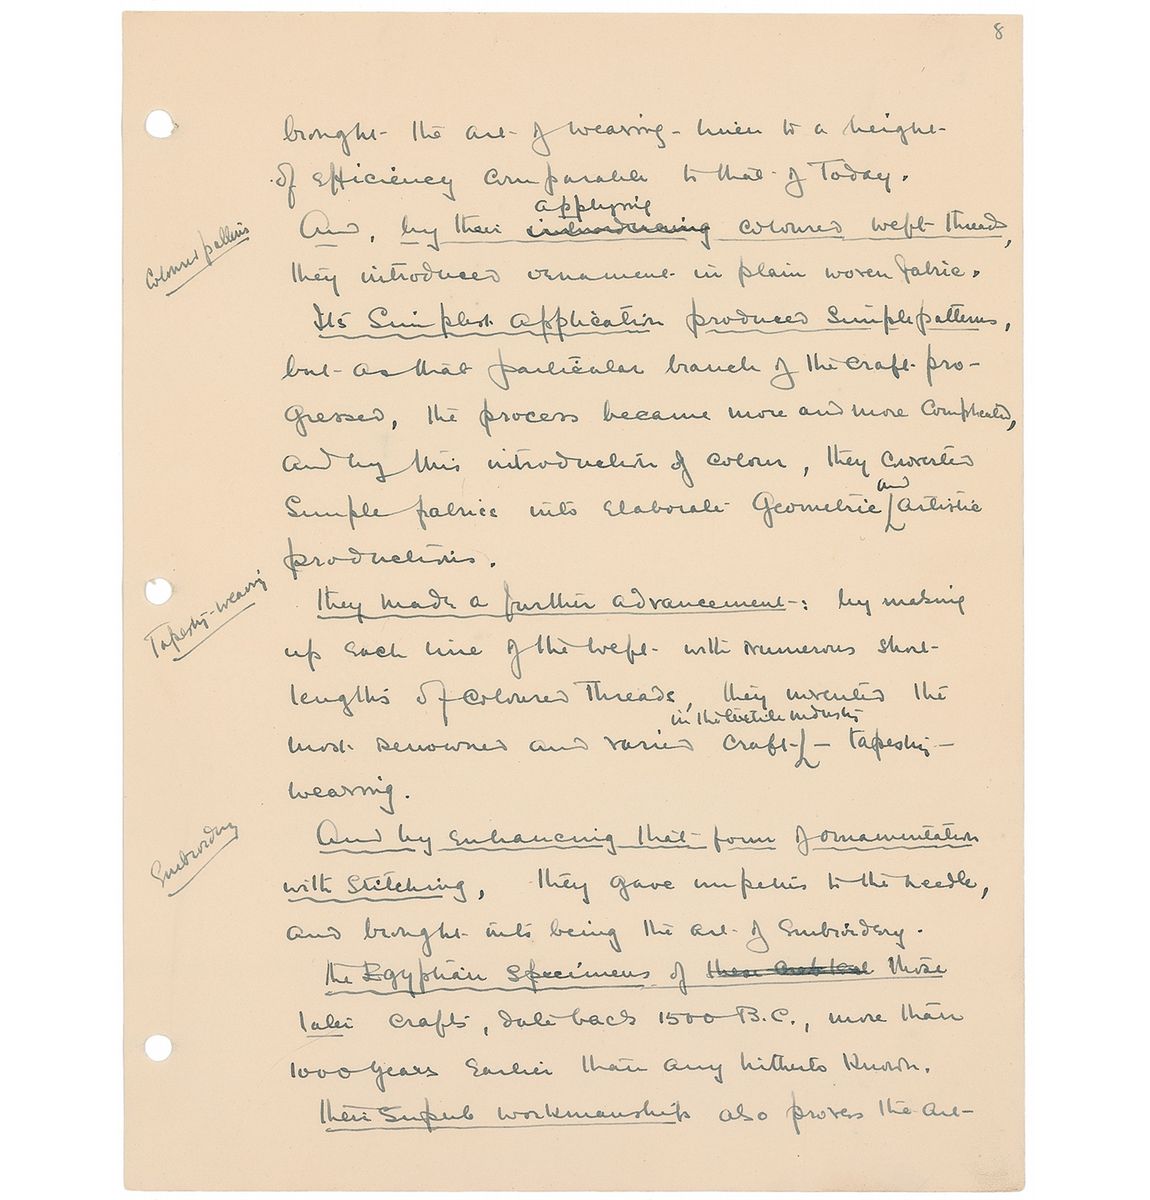 8
brought the art of weaving linen to a height
of efficiency comparable to that of Today.
applying
And, by their introducing coloured weft threads,
Coloured patterns
they introduced ornament in plain woven fabric.
Its Simplest Application produced Simple patterns,
but as that particular branch of the craft pro-
gressed, the process became more and more complicated,
and by this introduction of colour, they converted
and
Simple fabrics into elaborate Geometric artistic
productions.
Tapestry-weaving
They made a further advancement: by making
up each line of the weft with numerous short
lengths of coloured Threads, they invented the
in the textile industry
most renowned and varied craft - tapestry-
weaving.
Embroidery
And by enhancing that form of ornamentation
with Stitching, they gave impetus to the needle,
and brought into being the art of Embroidery.
The Egyptian Specimens of those
later crafts, date back 1500 B.C., more than
1000 years Earlier than any hitherto Known.
Their Superb workmanship also proves the art